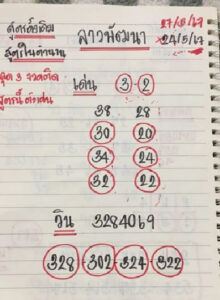 สูตรดั้งเดิม
ลาวพัฒนา
27/5/67
24/5/67
สูตรในตำนาน
ชุด 3 งวดติด
เด่น 3-2
38 28
30 20
34 24
32 22
วิน 3284069
328-302-324-322